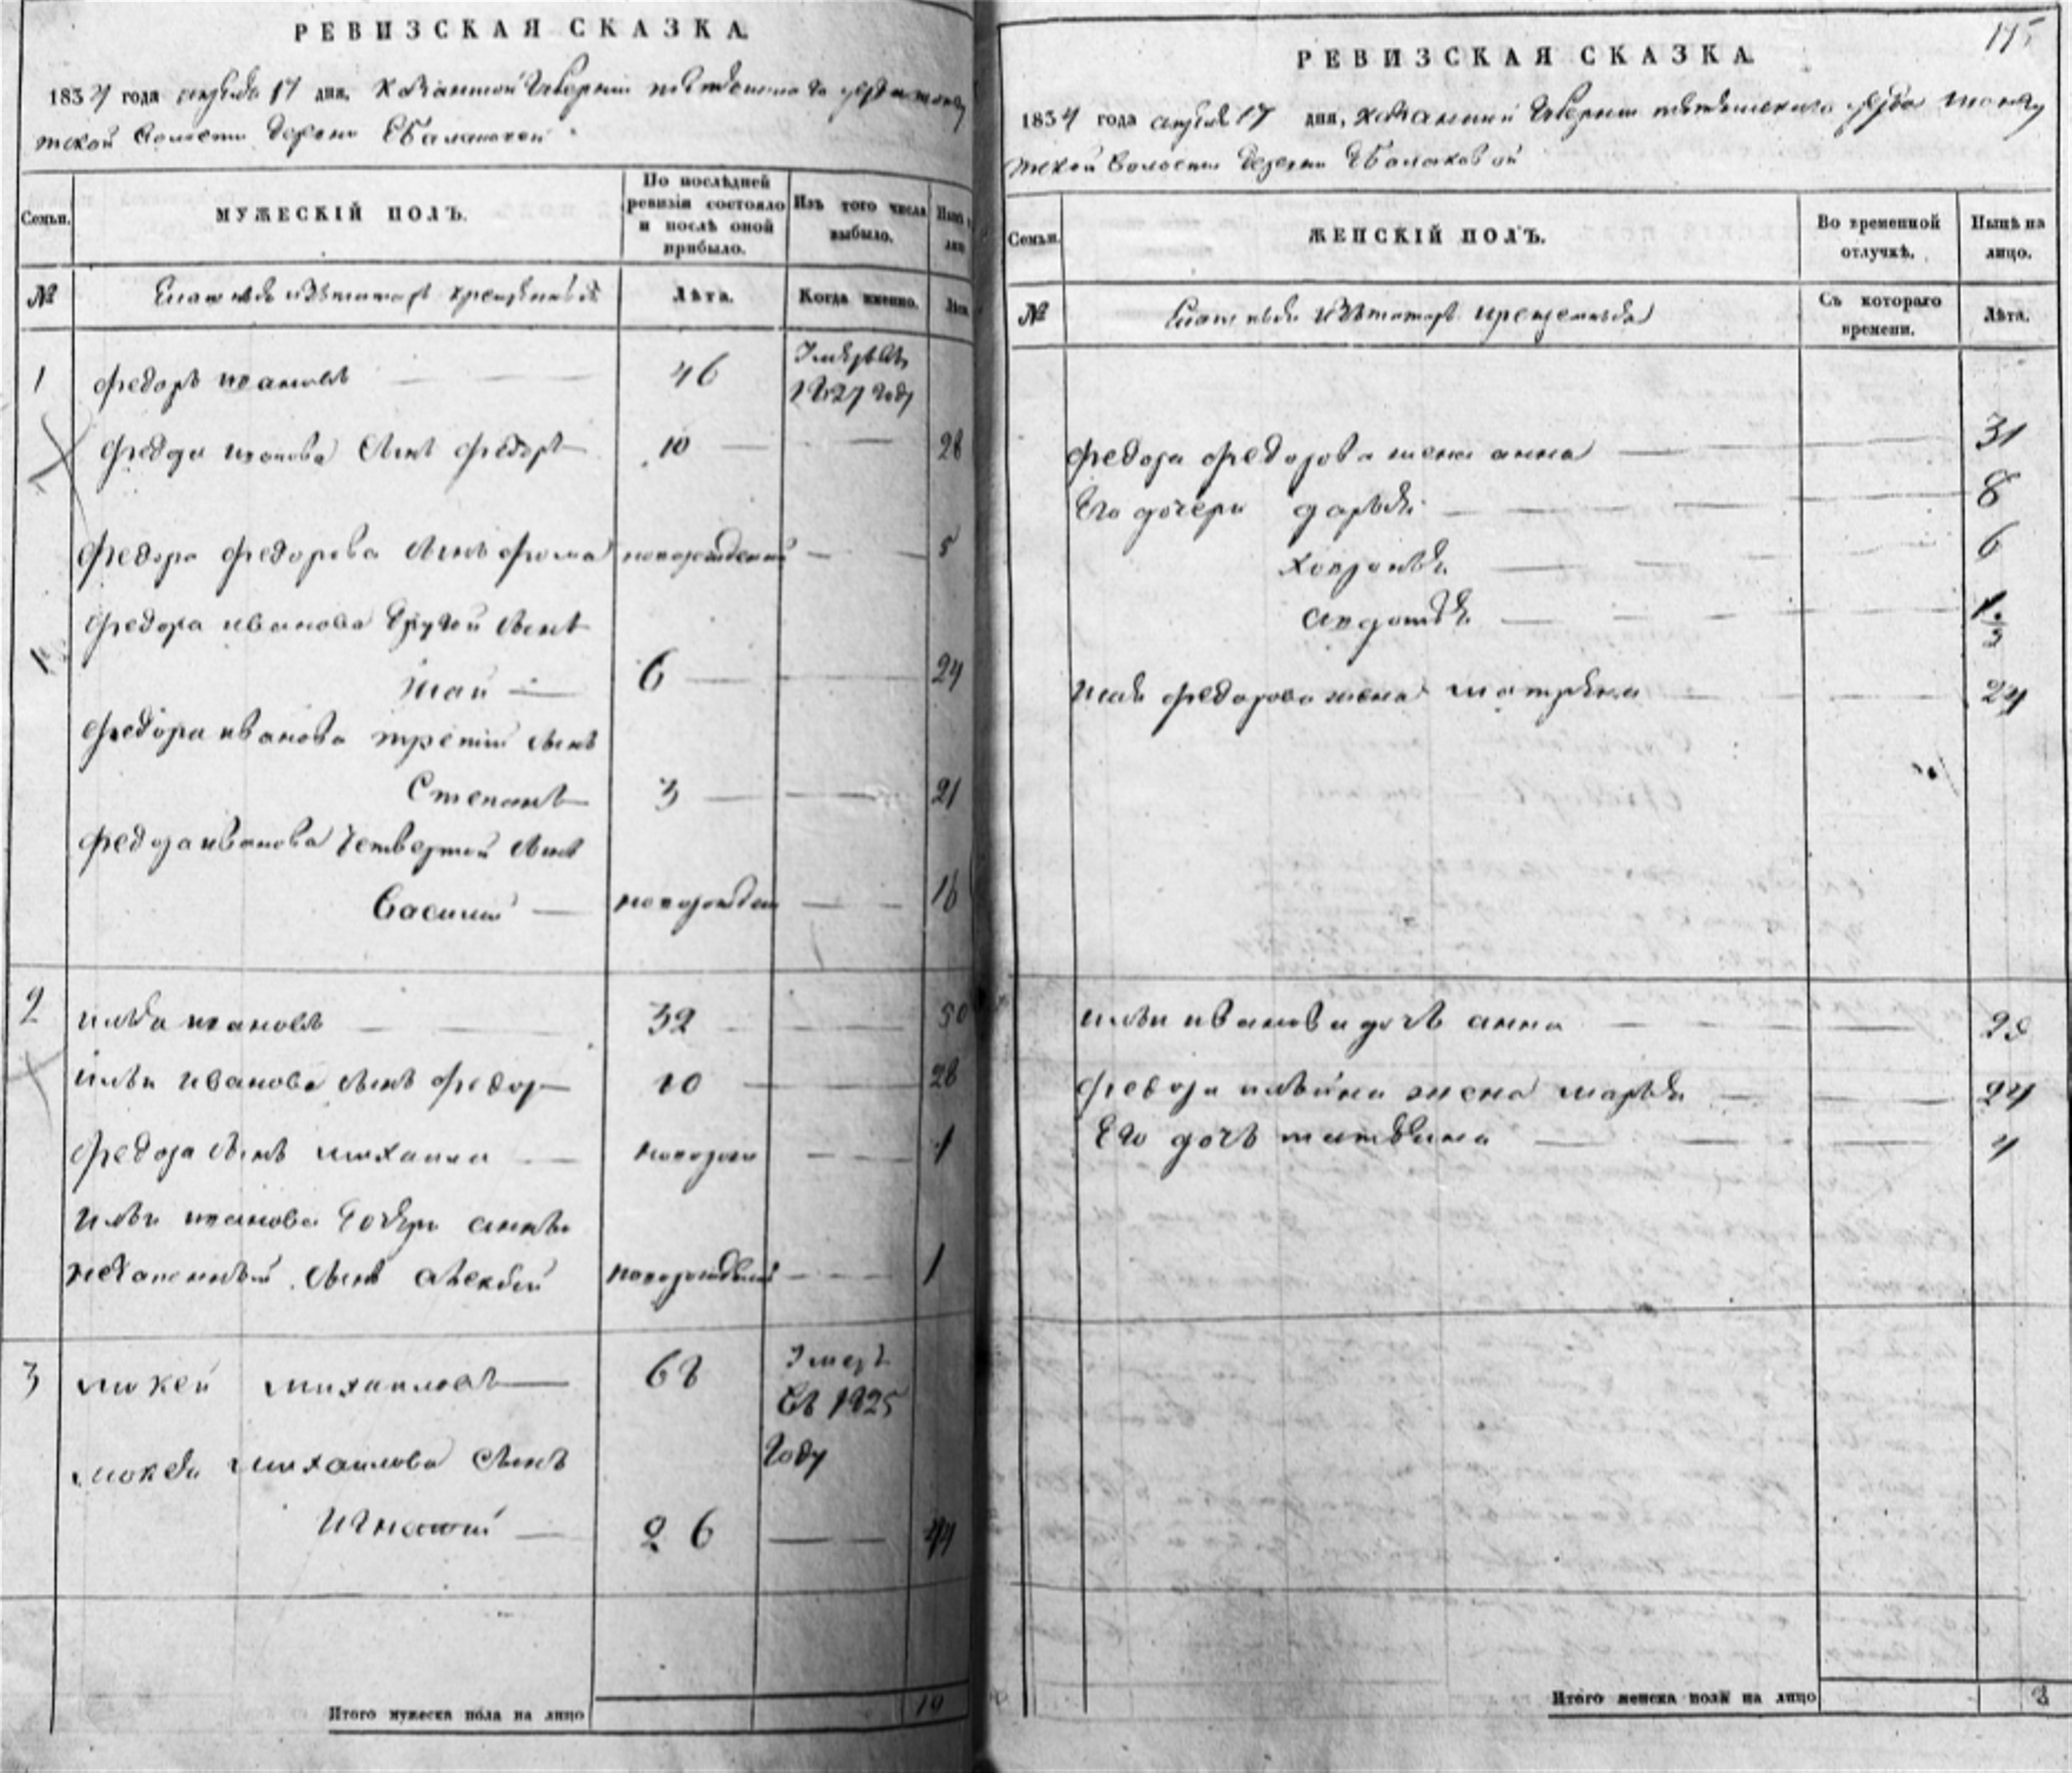 РЕВИЗСКАЯ СКАЗКА.
1834 года апреля 17 дня. Казанской Губернии тетюшского уезда
волости деревни
Семьи.
МУЖЕСКІЙ ПОЛЪ.
По послѣдней ревизіи состояло и послѣ оной прибыло.
Изъ того числа выбыло.
№
Лѣта.
Когда именно.
1 федоръ ивановъ 46 Умеръ въ
1827 году
федора иванова сынъ федоръ 10 28
федора федорова сынъ фома новорожденный 5
федора иванова другой сынъ
6 24
федора иванова третий сынъ
Степанъ 3 21
федора иванова четвертой сынъ
Василий новорожден 16
2 илья ивановъ 32 50
ильи иванова сынъ федор 10 28
федора сынъ михаила новорож 1
ильи иванова дочери анны
незаконный сынъ алексей новорожденный 1
3 мокей михаиловъ 68 Умеръ
въ 1825
году
мокея михаилова сынъ
Игнатий 26 44
Итого мужеска пола на лицо 10
115
РЕВИЗСКАЯ СКАЗКА.
1834 года апреля 17 дня, казанской Губернии тетюшского уезда
волости деревни
Семьи.
ЖЕНСКІЙ ПОЛЪ.
Во временной отлучкѣ.
Нынѣ на лицо.
№
Съ котораго времени.
Лѣта.
федора федорова жена анна 31
Его дочери дарья 8
6
авдотья 1/2
федорова жена матрена 24
ильи иванова дочь анна
федора ильина жена марья 24
Его дочь татьяна 4
Итого женска пола на лицо 8